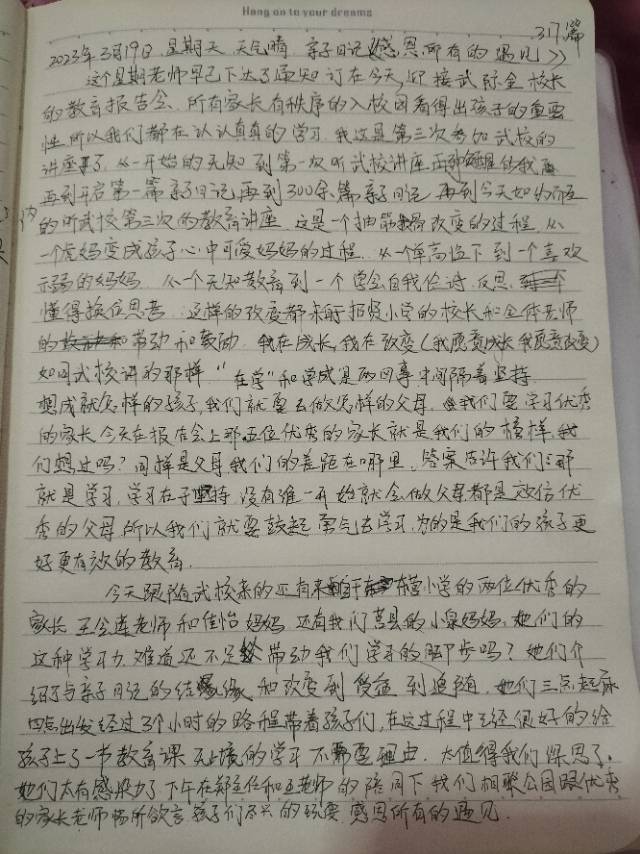 Hang on to your dreams
317篇
2023年3月19日 星期天 天气晴 亲子日记《感恩所有的遇见》
这个星期老师早已下达了通知 订在今天 迎接武际金校长
的教育报告会、所有家长有秩序的入校园看得出孩子的重要
性所以我们都在认认真真的学习.我这是第三次参加武校的
讲座了,从一开始的无知到第一次听武校讲座
再到开启第一篇亲子日记再到300余篇亲子日记 再到今天如约而至
的听武校第三次的教育讲座.这是一个抽筋 改变的过程.从
一个虎妈变成孩子心中可爱妈妈的过程.从一个单高临下到一个喜欢
示弱的妈妈.从一个无知教育到一个学会自我检讨.反思.
懂得换位思考.这样的改变都来自于招贤小学的校长和全体老师
的 带动和鼓励.我在成长,我在改变(我愿意成长 我愿意改变)
如同武校讲的那样"在学"和学成是两回事中间隔着坚持
想成就怎样的孩子,我们就要去做怎样的父母.我们要学习优秀
的家长今天在报告会上那五位优秀的家长就是我们的榜样.我
们想过吗?同样是父母我们的差距在哪里.答案告许我们那
就是学习.学习在于坚持.没有谁一开始就会做父母都是效仿优
秀的父母所以我们就要鼓起勇气去学习,为的是我们的孩子更
好更有效的教育.
今天跟随武校来的还有来 小学的两位优秀的
家长 王会连老师和佳怡妈妈 还有我们莒县的小泉妈妈,她们的
这种学习力难道还不足 带动我们学习的脚步吗?她们介
绍了与亲子日记的结缘 和改变到受益到追随.她们三点起床
四点出发经过3个小时的路程带着孩子们,在这过程中已经很好的给
孩子上了一节教育课 无止境的学习不需要理由.太值得我们深思了.
她们太有感染力了下午在郑主任和王老师的陪同下我们相聚公园跟优秀
的家长老师畅所欲言孩子们尽兴的玩耍 感恩所有的遇见.